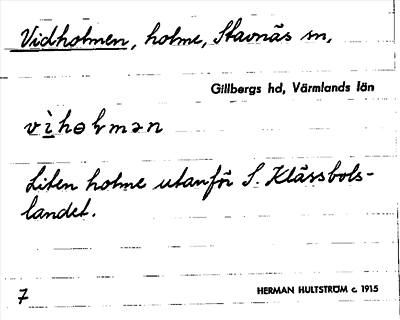 Vidholmen, holme, Stavnäs sn,
Gillbergs hd, Värmlands län
Liten holme utanför S. Klässbols-
landet.
7
HERMAN HULTSTRÖM c. 1915